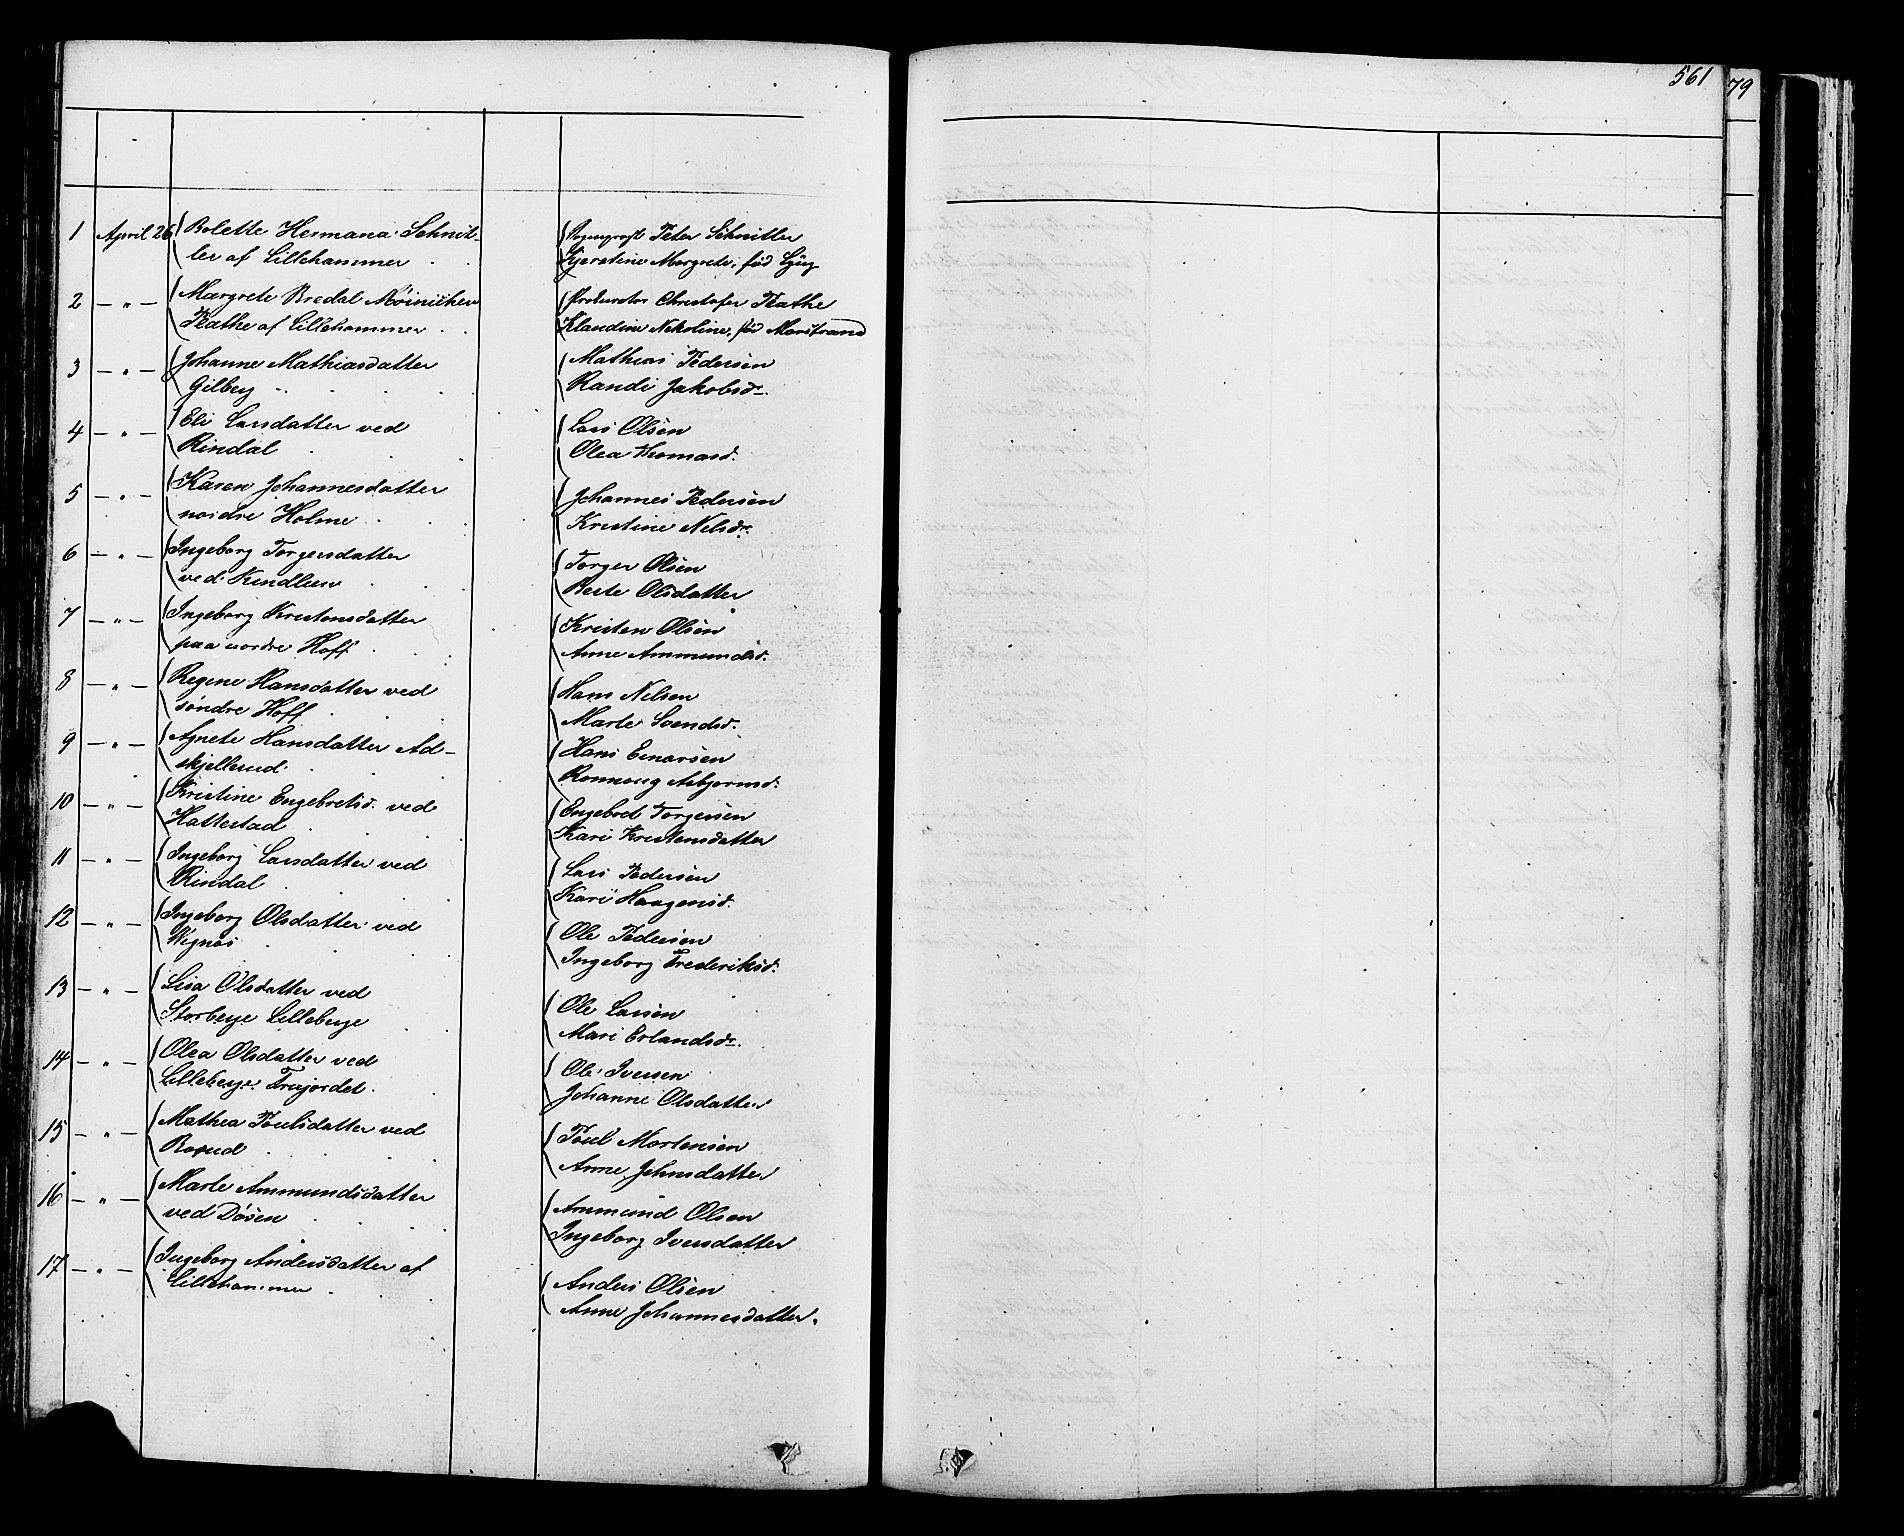 561
79
1 April 26 Bolette Hermana Schnit-
ler af Lillehammer
Peter Schnitler
Kjerstine Margrete, fød
2 — " — Margrete Bredal Møinichen
Rathe af Lillehammer
Prokurator Christofer Rathe
Klaudine Nekoline, fød Marstrand
3 — " — Johanne Mathiasdatter
Gilberg
Mathias Pedersen
Randi Jakobsd.
4 — " — Eli Larsdatter ved
Rindal
Lars Olsen
Olea Thomasd.
5 — " — Karen Johannesdatter
nordre Holme
Johannes Pedersen
Kristine Nelsdr.
6 — " — Ingeborg Torgersdatter
ved Kindlien
Torger Olsen
Berte Olsdatter
7 — " — Ingeborg Kristensdatter
paa nordre Hoff
Kristen Olsen
Anne Ammundsd.
8 — " — Regine Hansdatter ved
søndre Hoff
Hans Nelsen
Marte Svendsd.
9 — " — Agnete Hansdatter Ad-
skjellerud
Hans Einarsen
Ronnoug Asbjørnsd.
10 — " — Kristine Engebretsd. ved
Hattestad
Engebret Torgersen
Kari Kristensdatter
11 — " — Ingeborg Larsdatter ved
Rindal
Lars Pedersen
Kari Haagensd.
12 — " — Ingeborg Olsdatter ved
Vignæs
Ole Pedersen
Ingeborg Frederiksd.
13 — " — Lisa Olsdatter ved
Storberge Lilleberge
Ole Larsen
Mari Erlandsdr.
14 — " — Olea Olsdatter ved
Lilleberge Trujordet.
Ole Iversen
Johanne Olsdatter
15 — " — Mathea Poulsdatter ved
Rosrud
Poul Mortensen
Anne Johnsdatter
16 — " — Marte Ammundsdatter
ved Døsen
Ammund Olsen
Ingeborg Iversdatter
17 — " — Ingeborg Andersdatter af
Lillehammer
Anders Olsen
Anne Johannesdatter.